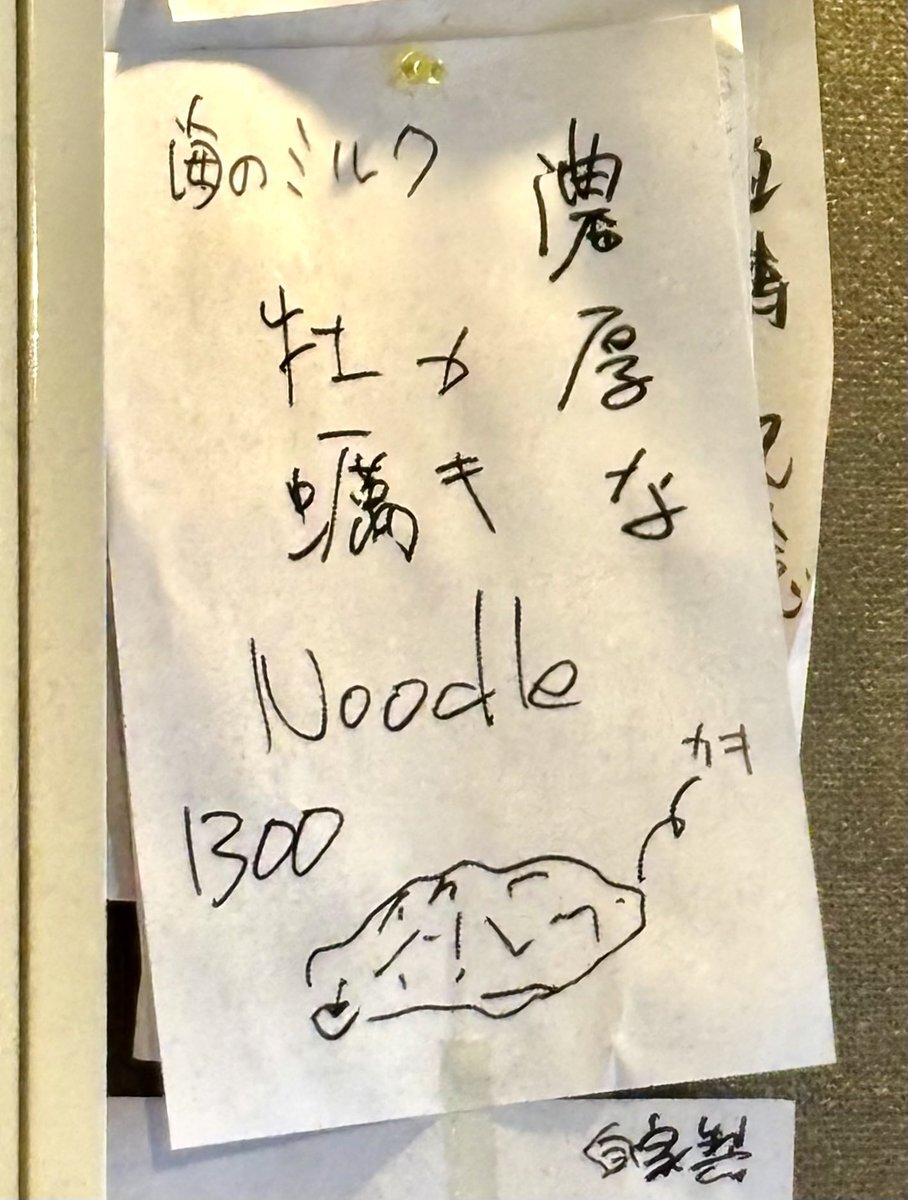 海のミルク
濃厚な
牡蠣
カキ
Noodle
1300
カキ
自家製